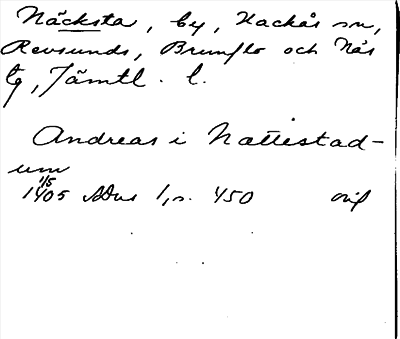 Näcksta, by, Hackås sn,
Revsunds, Brunflo och Näs
tg, Jämtl. l.
Andreas i Nattestad-
um
1/5
1405 SDns 1, s. 450 orig